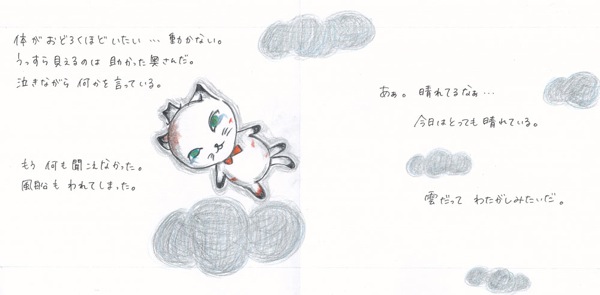 体がおどろくほどいたい…動かない。
うっすら見えるのは助かった奥さんだ。
泣きながら何かを言っている。
もう何も聞こえなかった。
風船もわれてしまった。
あぁ。晴れてるなぁ…
今日はとっても晴れている。
雲だってわたがしみたいだ。